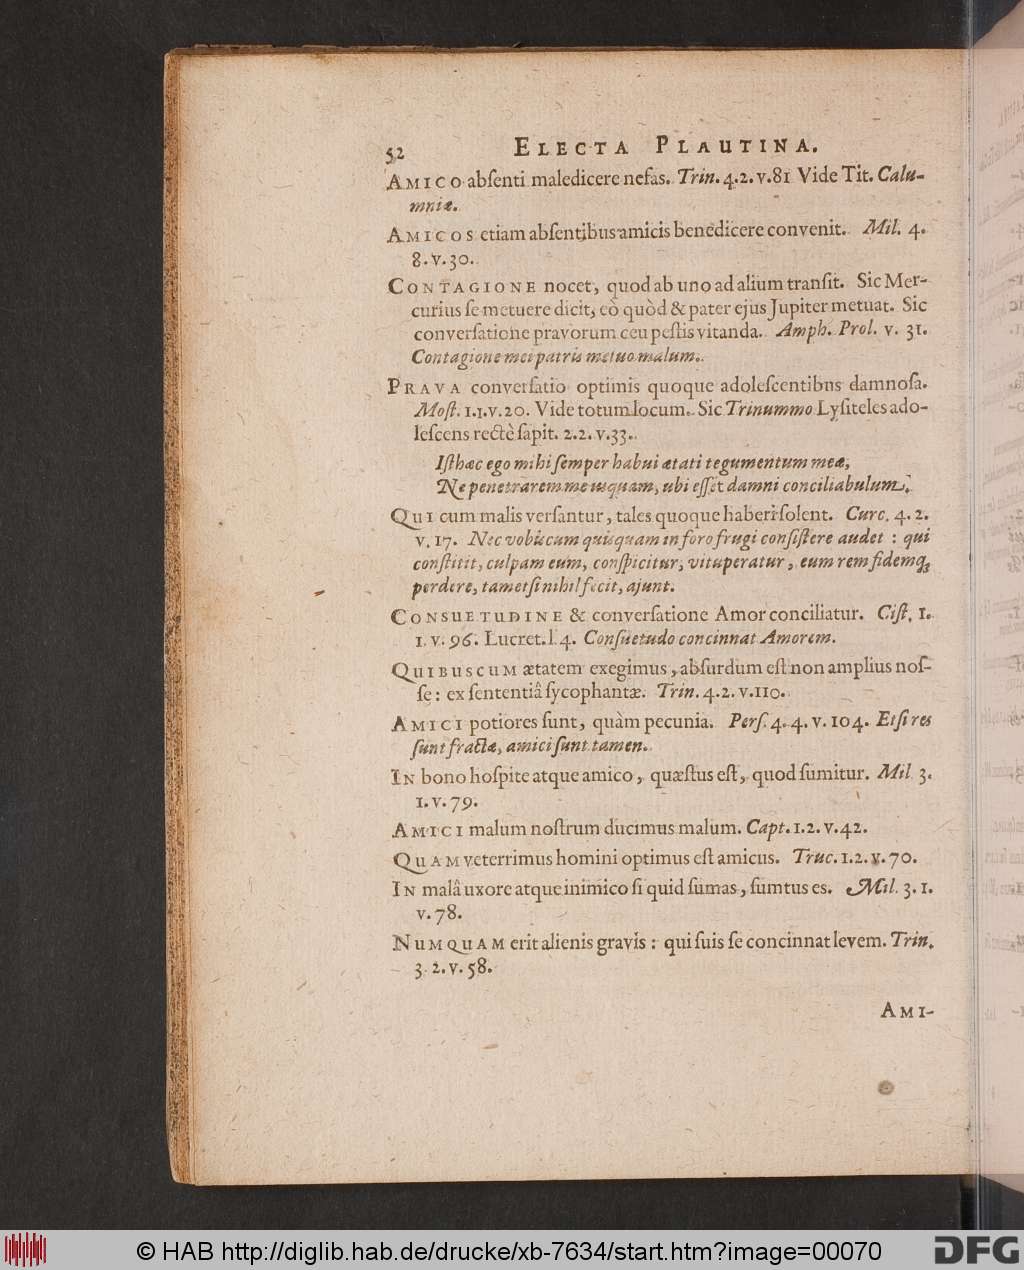 52 ELECTA PLAUTINA.
AMICO absenti maledicere nefas. Trin. 4.2.v.81 Vide Tit. Calu-
mniæ.
AMICOS etiam absentibus amicis benedicere convenit. Mil. 4.
8.v.30.
CONTAGIONE nocet, quod ab uno ad alium transit. Sic Mer-
curius se metuere dicit, eò quòd & pater ejus Jupiter metuat. Sic
conversatione pravorum ceu pestis vitanda. Amph. Prol. v. 31.
Contagione mei patris metuo malum.
PRAVA conversatio optimis quoque adolescentibus damnosa.
Most. 1.1.v.20. Vide totum locum. Sic Trinummo Lysiteles ado-
lescens rectè sapit. 2.2.v.33.
Isthæc ego mihi semper habui ætati tegumentum meæ,
Ne penetrarem me usquam, ubi esset damni conciliabulum.
QUI cum malis versantur, tales quoque haberi solent. Curc. 4.2.
v.17. Nec vobiscum quisquam in foro frugi consistere audet : qui
constitit, culpam eum, conspicitur, vituperatur, eum rem fidemq;
perdere, tametsi nihil fecit, ajunt.
CONSUETUDINE & conversatione Amor conciliatur. Cist. 1.
1.v.96. Lucret. l 4. Consuetudo concinnat Amorem.
QUIBUSCUM ætatem exegimus, absurdum est non amplius nos-
se: ex sententiâ sycophantæ. Trin. 4.2.v.110.
AMICI potiores sunt, quàm pecunia. Pers. 4.4.v.104. Etsi res
sunt fractæ, amici sunt tamen.
IN bono hospite atque amico, quæstus est, quod sumitur. Mil 3.
1.v.79.
AMICI malum nostrum ducimus malum. Capt. 1.2.v.42.
QUAM veterrimus homini optimus est amicus. Truc. 1.2.v.70.
IN malâ uxore atque inimico si quid sumas, sumtus es. Mil. 3.1.
v.78.
NUMQUAM erit alienis gravis : qui suis se concinnat levem. Trin.
3.2.v.58.
AMI-
© HAB http://diglib.hab.de/drucke/xb-7634/start.htm?image=00070
DFG